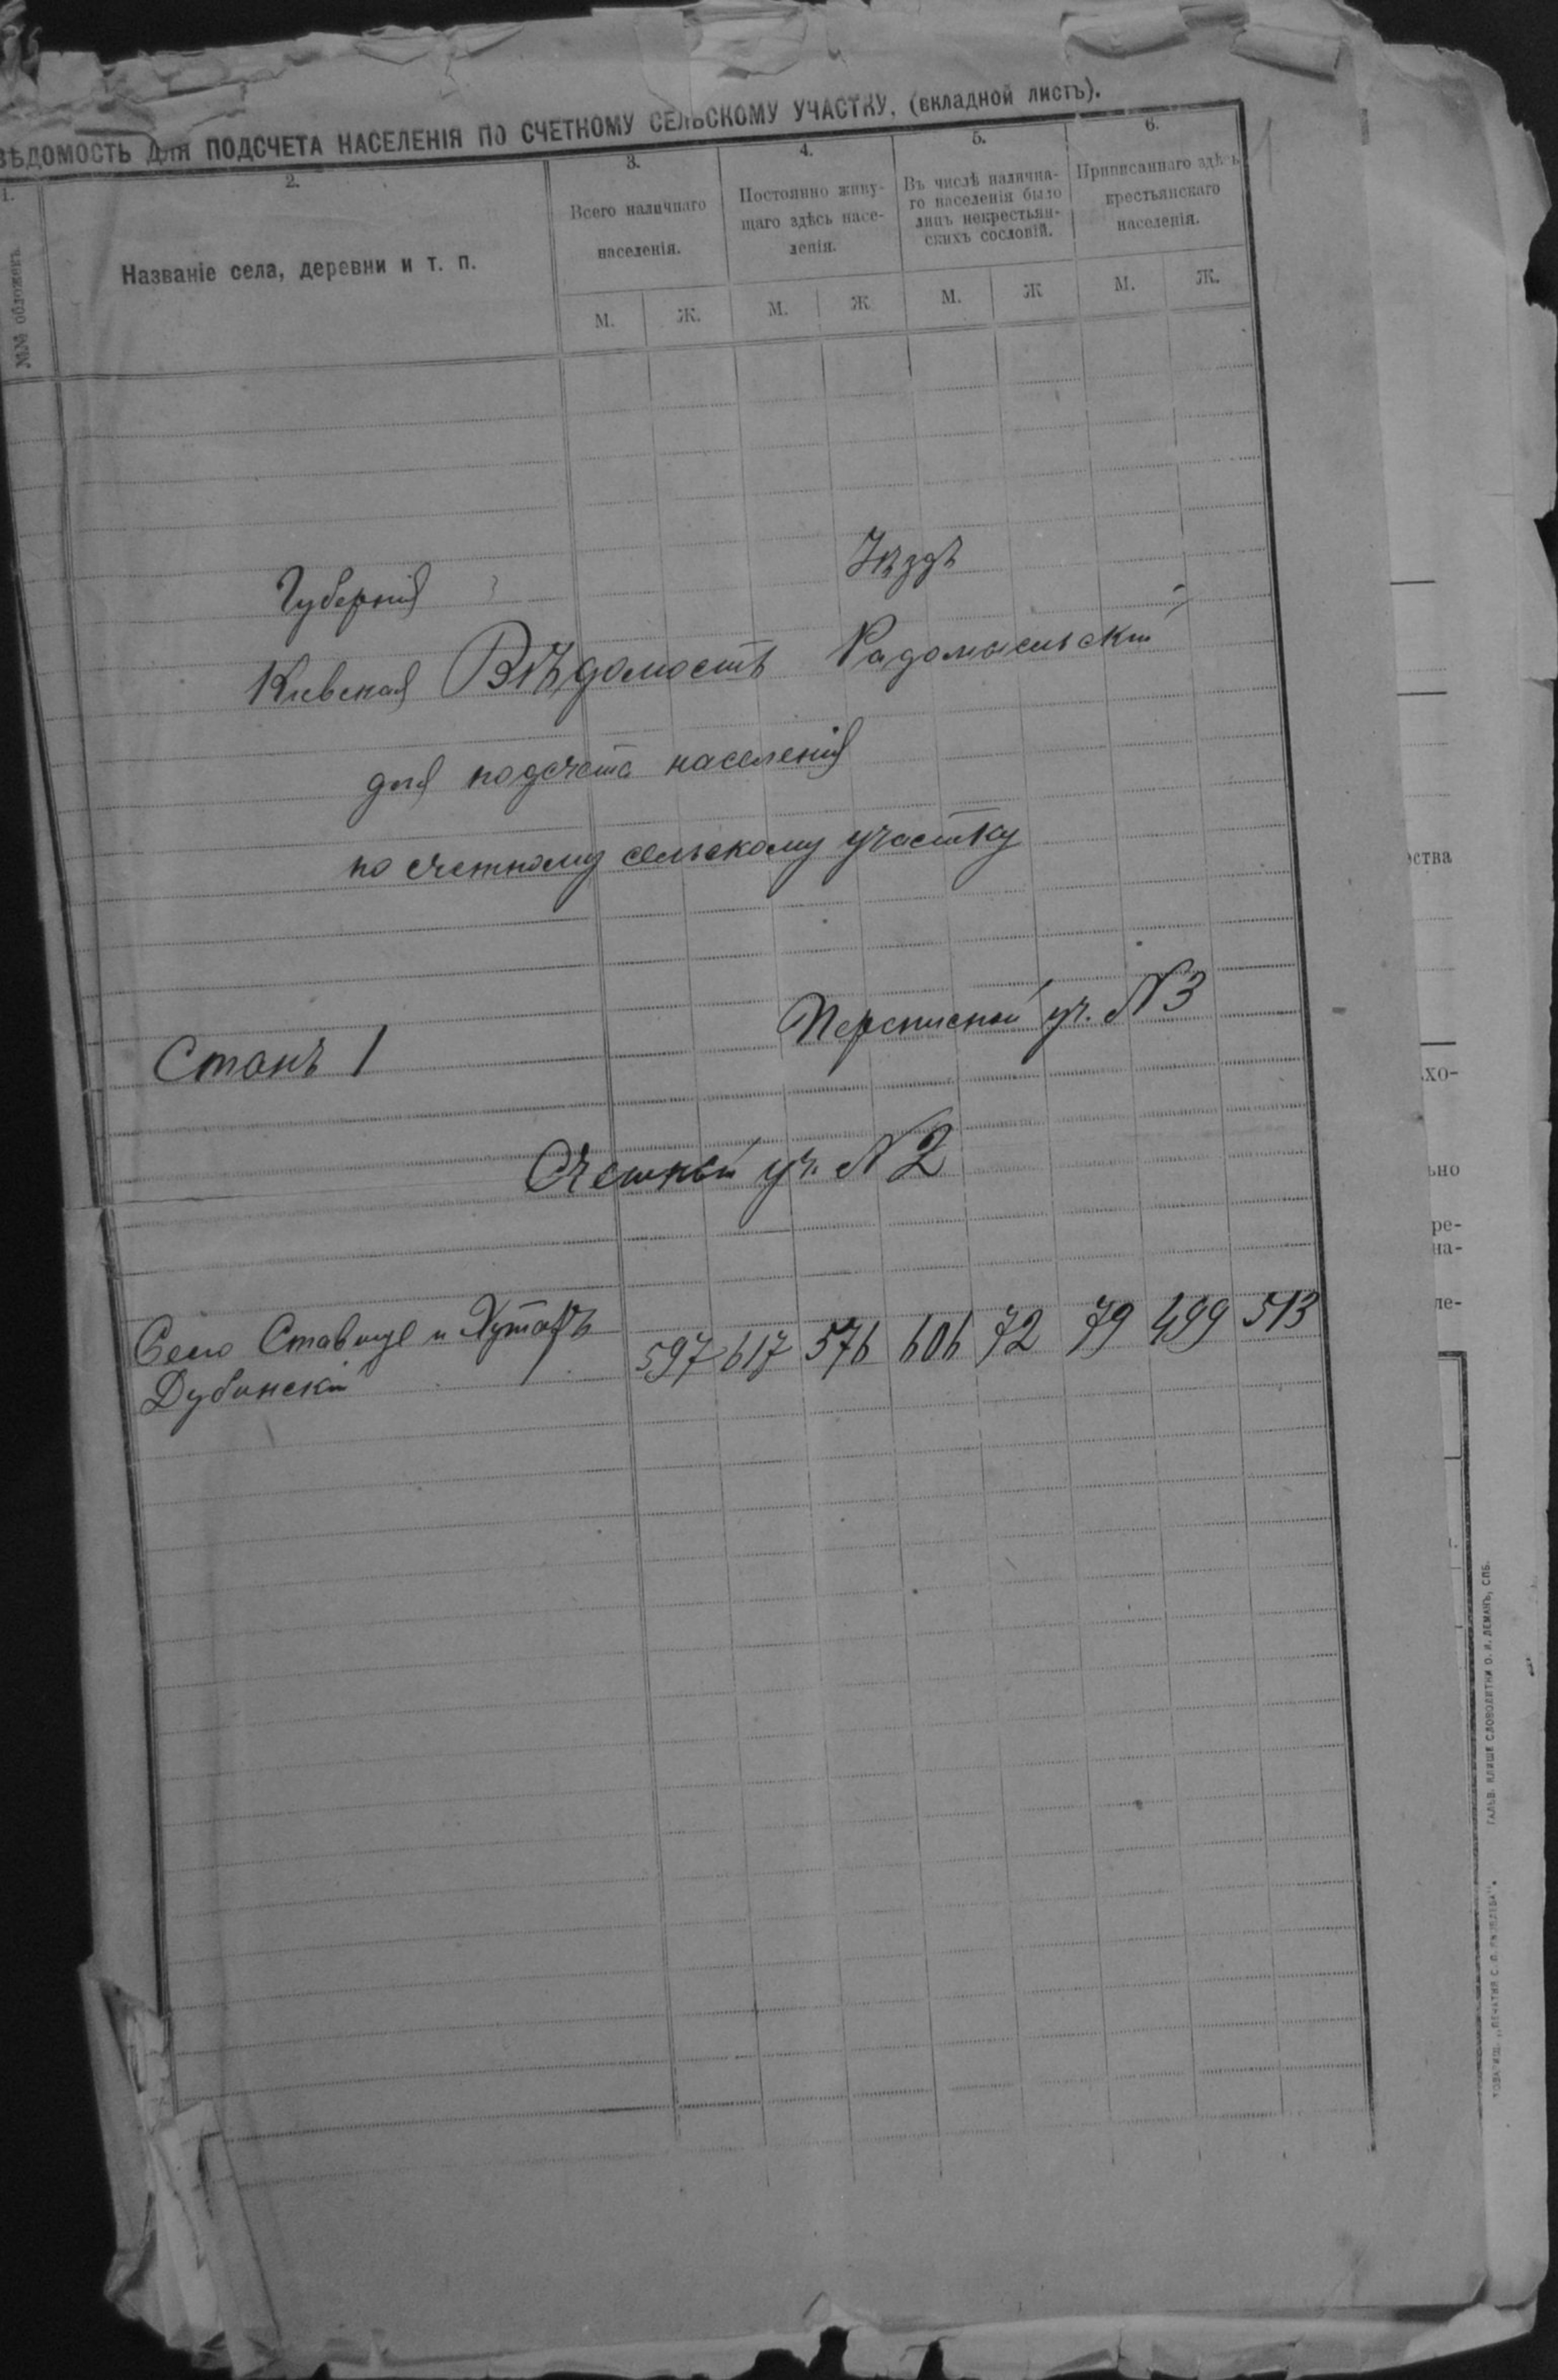 ВѢДОМОСТЬ ДЛЯ ПОДСЧЕТА НАСЕЛЕНІЯ ПО СЧЕТНОМУ СЕЛЬСКОМУ УЧАСТКУ, (вкладной листъ).
1. 2. 3. 4. 5. 6.
№№ обложекъ
Названіе села, деревни и т. п.
Всего наличнаго
населенія.
Постоянно живу-
щаго здѣсь насе-
ленія.
Въ числѣ налична-
го населенія было
лицъ некрестьян-
скихъ сословій.
Приписаннаго здѣсь
крестьянскаго
населенія.
М. Ж. М. Ж М. Ж М. Ж.
Губернія Уѣздъ
Кіевская Вѣдомость Радомысльскій
для подсчета населенія
по счетному сельскому участку
Станъ 1 Переписной уч. N 3
Счетный уч. N 2
Село Ставище и Хуторъ 597 617 576 606 72 79 499 513
Дубинскій
ства
хо-
ьно
ре-
на-
ле-
ГАЛЬВ. КЛИШЕ СЛОВОЛИТНИ О. И. ЛЕМАНЪ, СПБ.